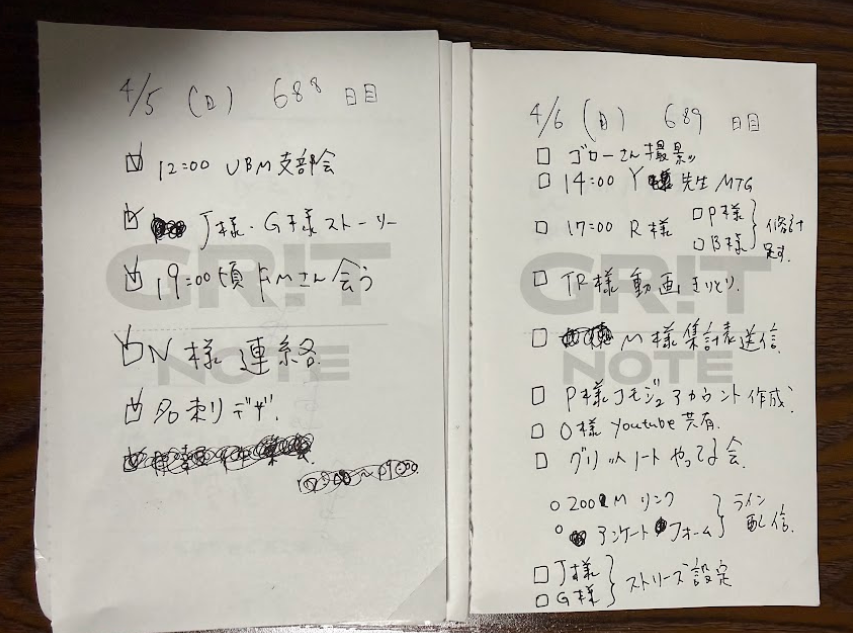 4/5 (日) 688 日目
12:00 UBM支部会
J様・G様ストーリー
19:00頃 さん会う
N様連絡
名刺デザ.
GR!T
NOTE
4/6 (月) 689 日目
ゴローさん撮影
14:00 Y 先生 MTG
17:00 R様
P様
B様
TR様動画きりとり.
M様集計表送信
P様コモジュアカウント作成.
O様 Youtube共有.
グリットノートやってる会.
リンク
アンケートフォーム
ライン配信.
J様
G様
ストリーズ設定
GR!T
NOTE